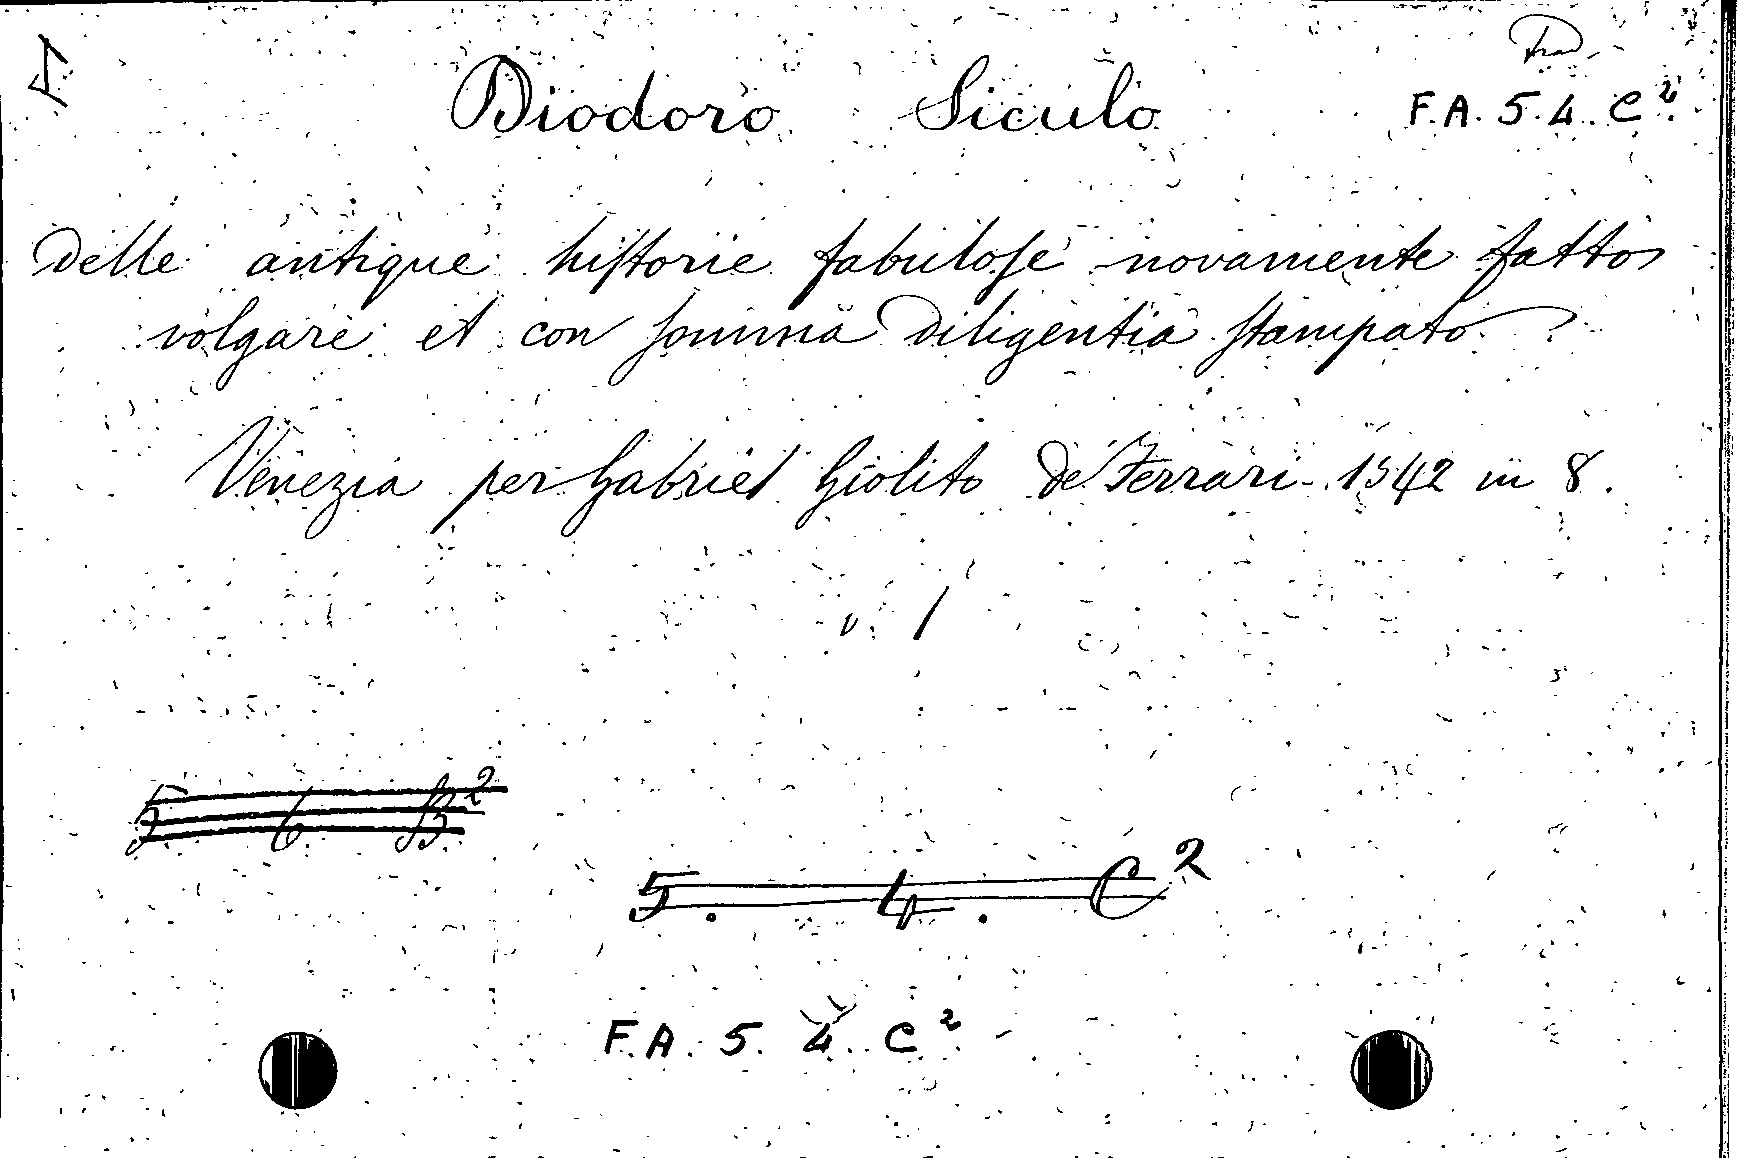 Trad.
Diodoro Siculo
F. A. 5. 4. C²
delle antique hiſtorie fabuloſe novamente fatto
volgare et con ſomma diligentia ſtampato.
Venezia per Gabriel Giolito de' Ferrari 1542 in 8.
v. 1
5 6 B²
5. 4. C²
F. A. 5. 4. C²